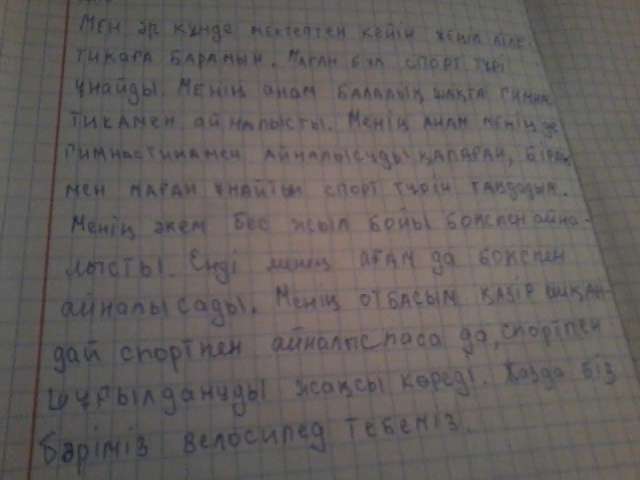 Мен әр күнде мектептен кейін жеңіл атле-
тикаға барамын. Маған бұл спорт түрі
ұнайды. Менің анам балалық шақта гимнас-
тикамен айналысты. Менің анам менің де
гимнастикамен айналысуды қалаған, бірақ
мен маған ұнайтын спорт түрін таңдадым.
Менің әкем бес жыл бойы бокспен айна-
лысты. Енді менің ағам да бокспен
айналысады. Менің отбасым қазір ешқан-
дай спортпен айналыспаса да, спортпен
шұғылдануды жақсы көреді. Жазда біз
бәріміз велосипед тебеміз.